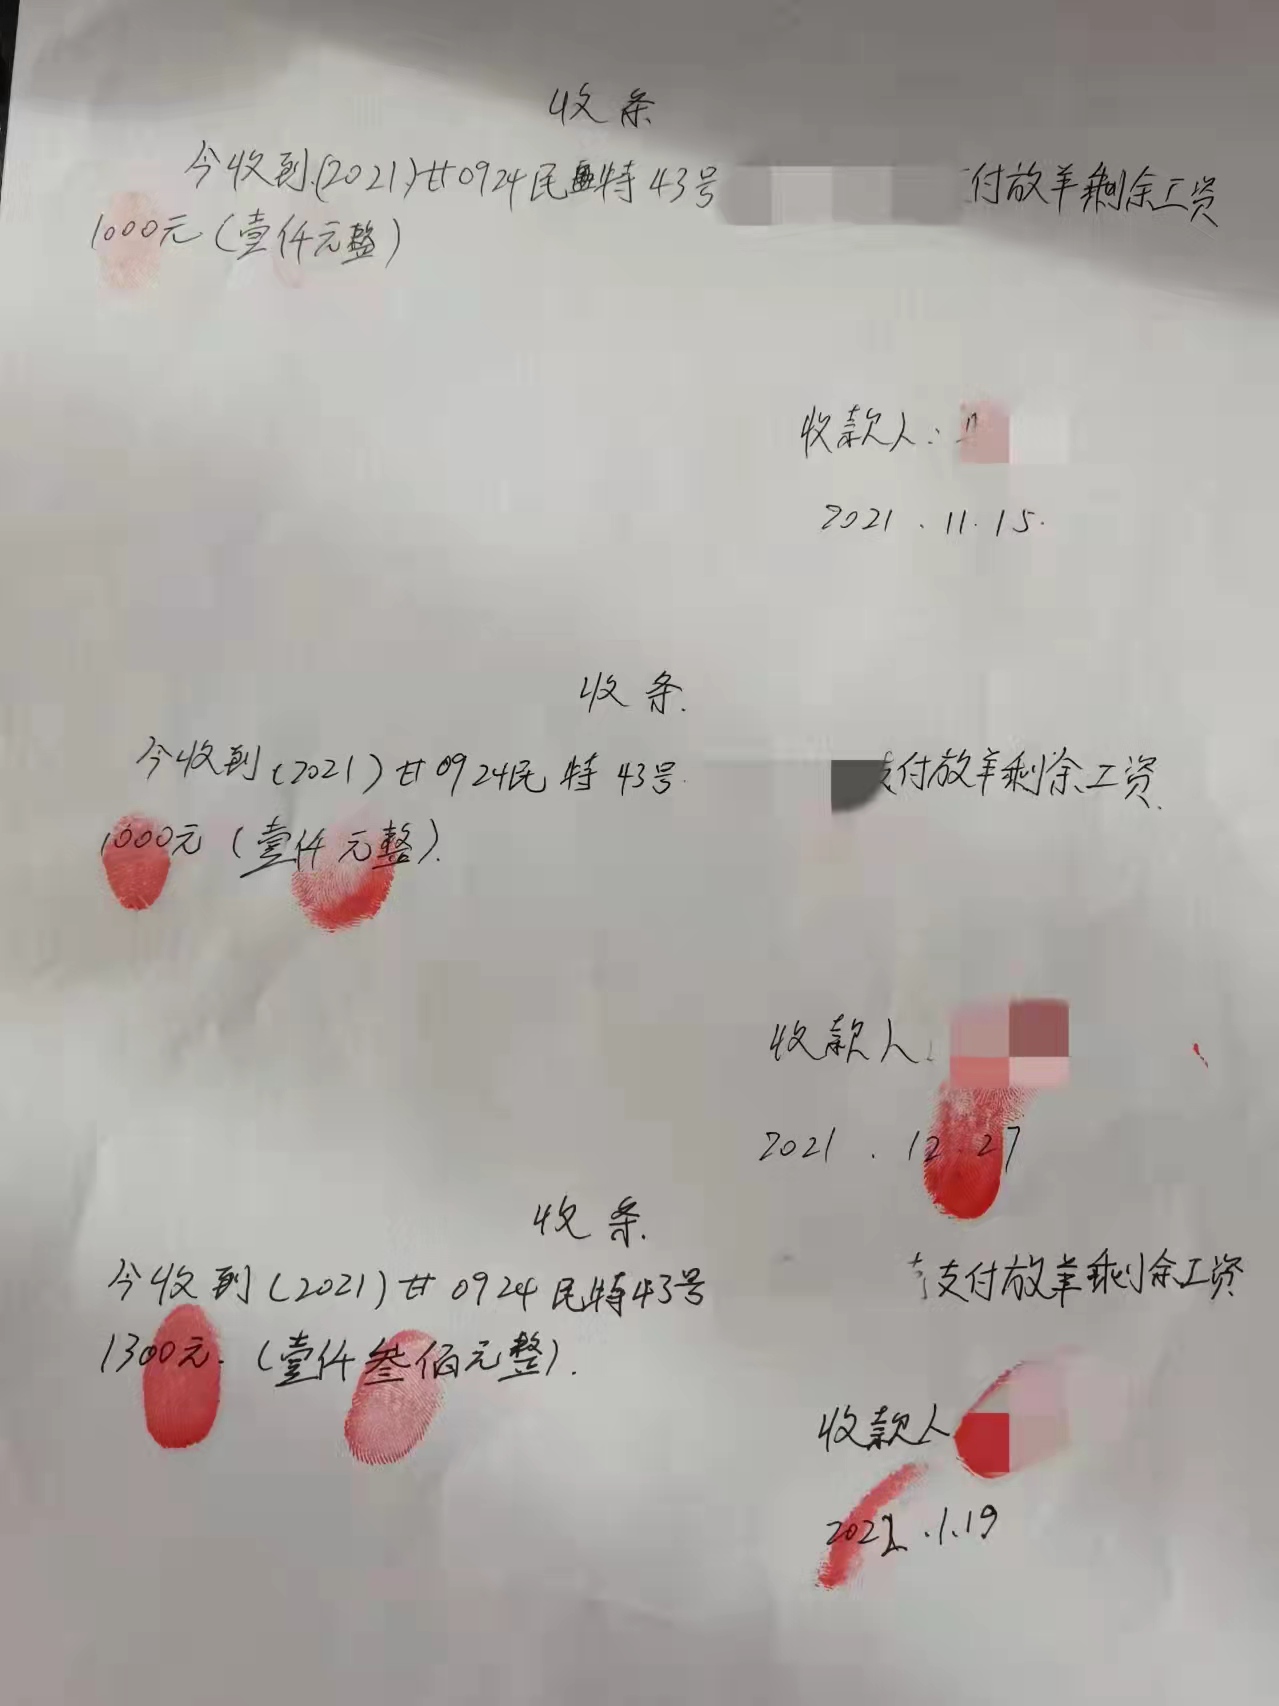 收条
今收到(2021)甘0924民特43号 付放羊剩余工资
1000元(壹仟元整)
收款人:
2021.11.15.
收条.
今收到(2021)甘0924民特43号 支付放羊剩余工资.
1000元(壹仟元整).
收款人:
2021.12.27
收条.
今收到(2021)甘0924民特43号 支付放羊剩余工资
1300元.(壹仟叁佰元整).
收款人
2022.1.19